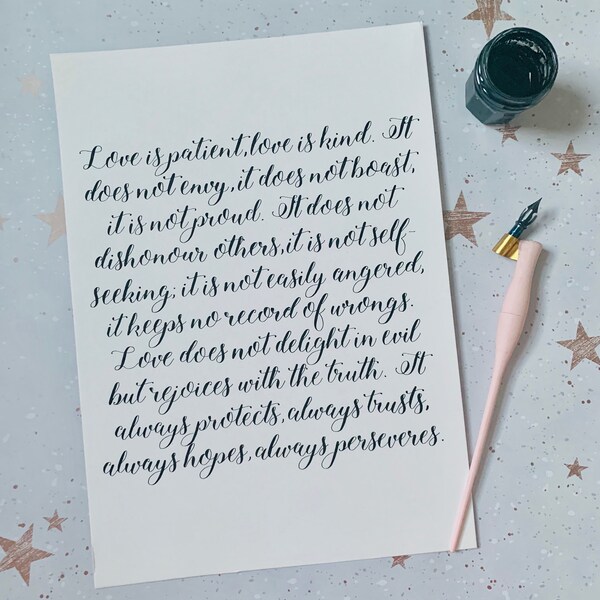 Love is patient, love is kind. It
does not envy, it does not boast,
it is not proud. It does not
dishonour others, it is not self-
seeking; it is not easily angered,
it keeps no record of wrongs.
Love does not delight in evil
but rejoices with the truth. It
always protects, always trusts,
always hopes, always perseveres.